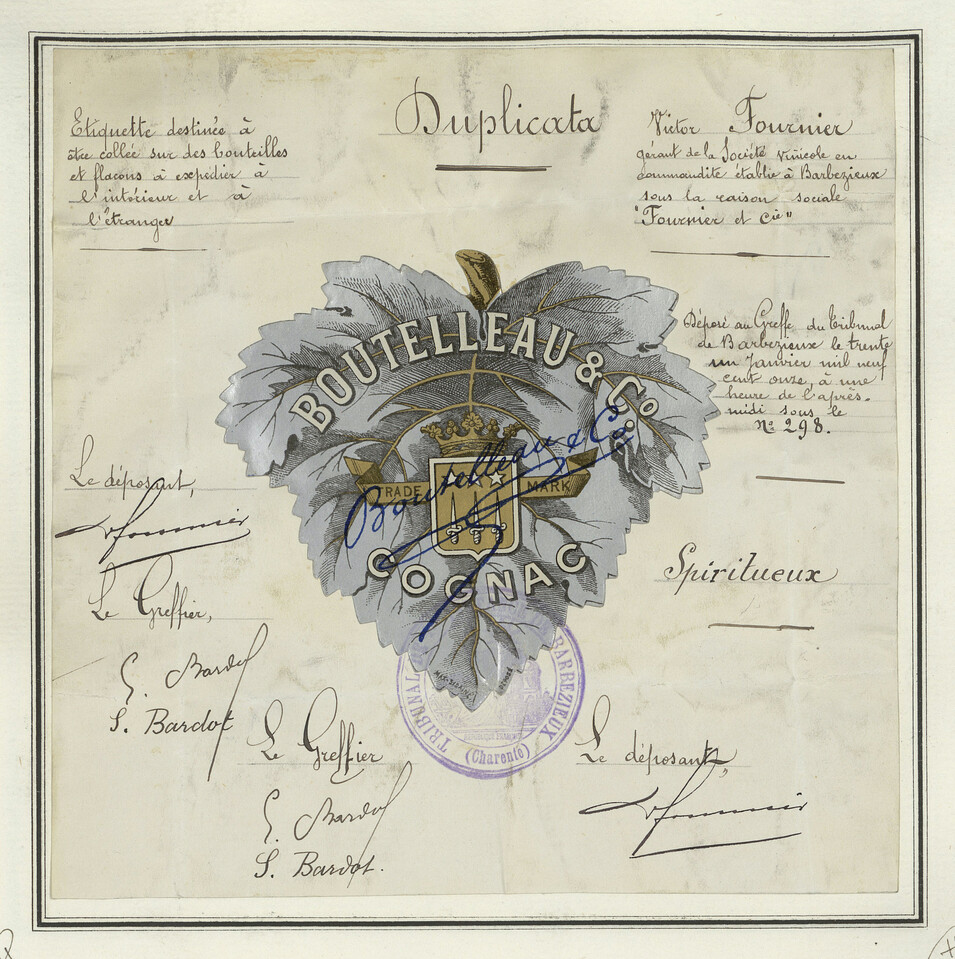 Duplicata
Etiquette destinée à
être collée sur des bouteilles
et flacons à expédier à
l'intérieur et à
l'étranger
Victor Fournier
gérant de la Société vinicole en
commandite établie à Barbezieux
sous la raison sociale
"Fournier et Cie"
Déposé au Greffe du Tribunal
de Barbezieux le trente
un Janvier mil neuf
cent onze, à une
heure de l'après-
midi sous le
No 298.
BOUTELLEAU & Co
TRADE MARK
Boutelleau & Co
COGNAC
Spiritueux
Le déposant,
Fournier
Le Greffier,
S. Bardot
S. Bardot
TRIBUNAL
BARBEZIEUX
(Charente)
Le Greffier
S. Bardot
S. Bardot.
Le déposant,
Fournier